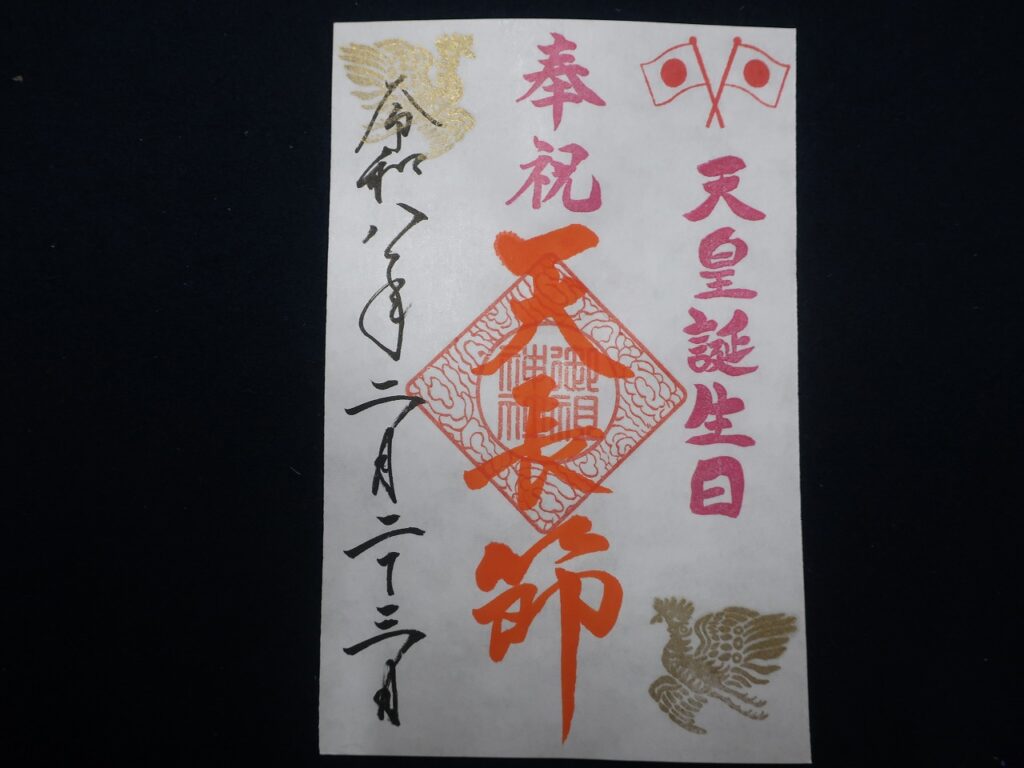 天皇誕生日
奉祝
天長節
御祖
神社
令和八年二月二十三日